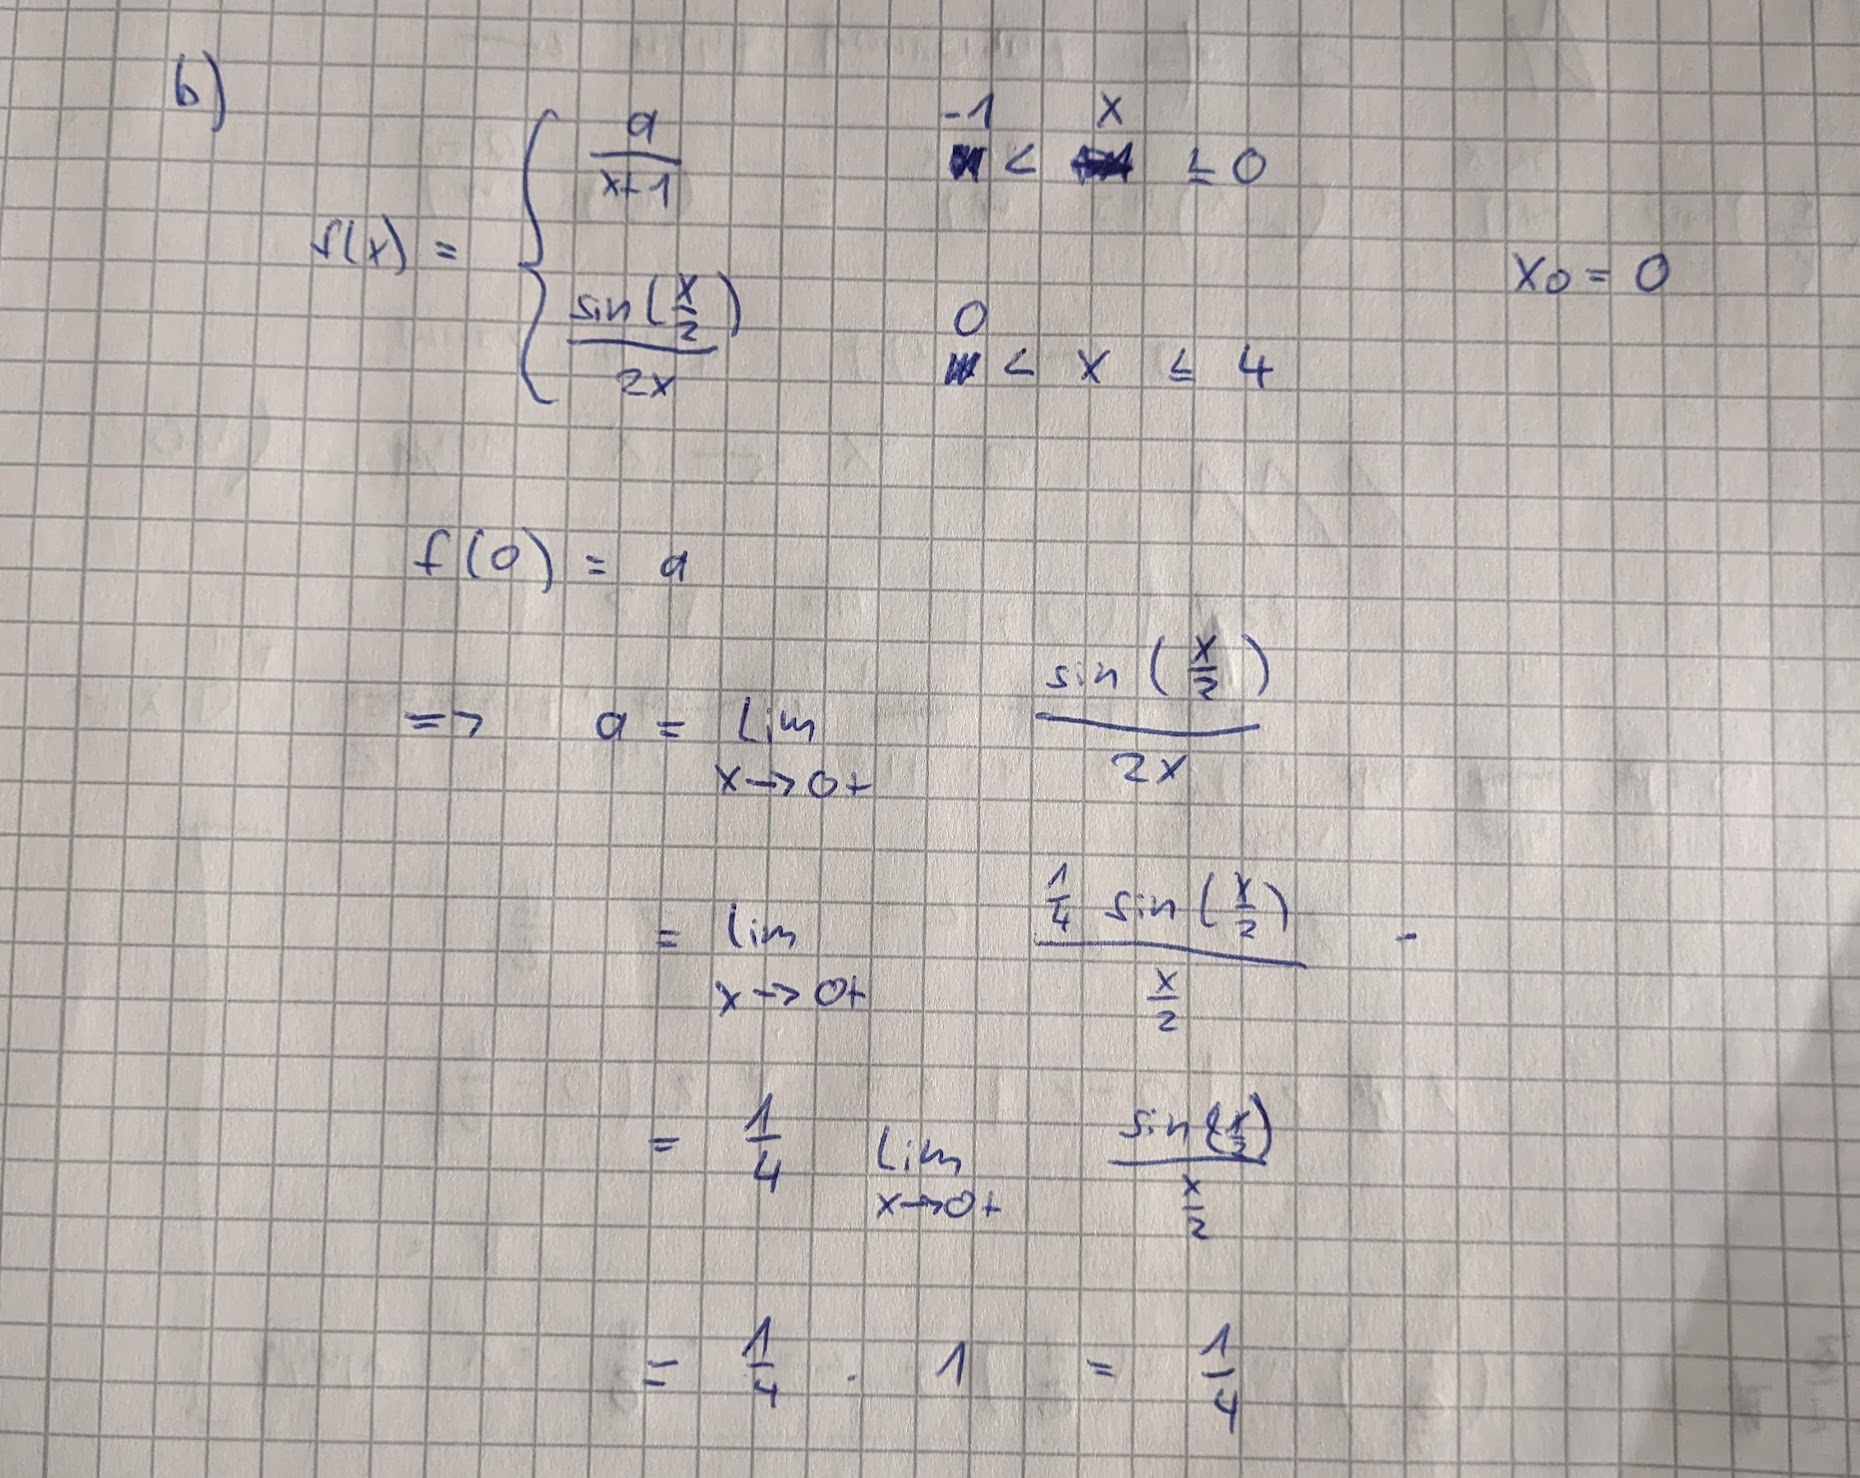 b)
f(x) = { a/(x+1)   -1 < x ≤ 0
sin(x/2)/2x   0 < x ≤ 4   x₀ = 0
f(0) = a
=> a = lim x→0+ sin(x/2)/2x
= lim x→0+ (1/4 sin(x/2))/(x/2) -
= 1/4 lim x→0+ sin(x/2)/(x/2)
= 1/4 · 1 = 1/4